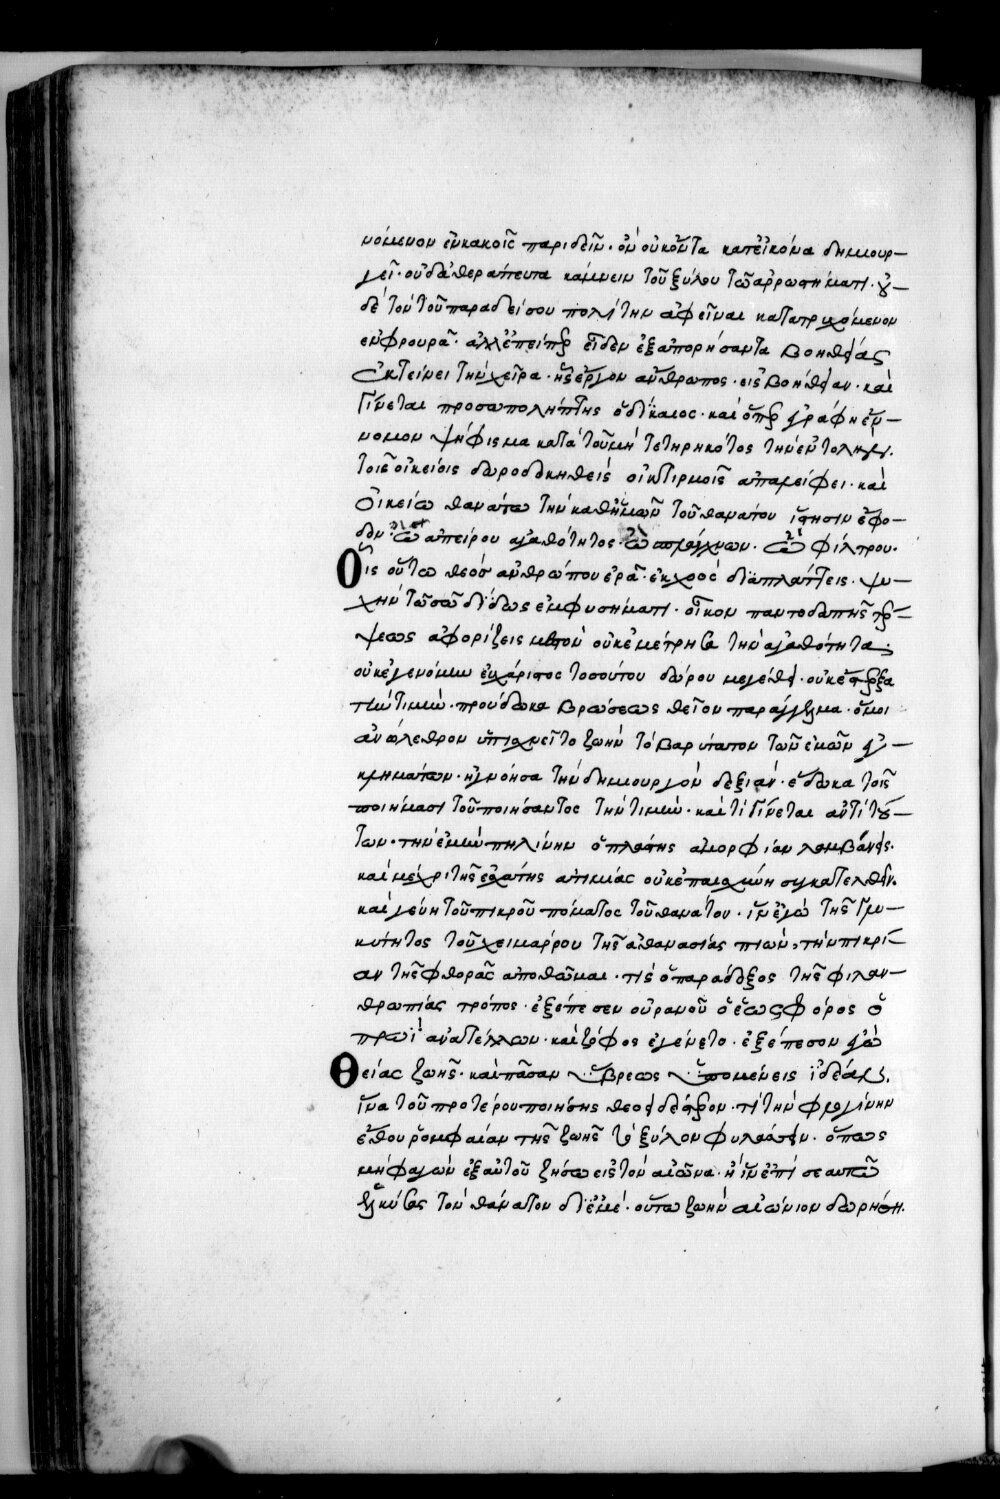 νόμενον ἐν κακοῖς παριδεῖν· ὃν οὐκ ὄντα κατ' εἰκόνα δημιουρ-
γεῖ· οὐδ' ἀθεράπευτα κάμνειν τοῦ ξύλου τῶ ἀρρωστήματι· οὐ-
δὲ τὸν τοῦ παραδείσου πολίτην ἀφεῖναι κατατρυχόμενον
ἐν φρουρᾶ· ἀλλ' ἐπείπερ εἶδεν ἐξαπορήσαντα βοηθείας
ἐκτείνει τὴν χεῖρα· ἧς ἔργον ἄνθρωπος· εἰς βοήθειαν· καὶ
γίνεται προσωπολήπτης ὁ δίκαιος· καὶ ὅπερ γράφη ἔν-
νομον ψήφισμα κατὰ τοῦ μὴ τετηρηκότος τὴν ἐντολὴν·
τοῖς οἰκείοις δωροδοκηθεὶς οἰκτιρμοῖς ἀπαμείφει· καὶ
οἰκείω θανάτω τὴν καθ' ἡμῶν τοῦ θανάτου ἵστησιν ἔφο-
δον ὢ ἀπείρου ἀγαθότητος· ὢ σπλάγχνων· ὢ φίλτρου·
Οἷς οὕτω θεὸς ἀνθρώπου ἐρᾶ· ἐκ χοὸς διαπλάττεις· ψυ-
χὴν τῶ σῶ δίδως ἐμφυσήματι· οἶκον παντοδαπῆς τέρ-
ψεως ἀφορίζεις οὐκ ἐμέτρησα τὴν ἀγαθότητα·
οὐκ ἐγενόμην εὐχάριστος τοσούτου δώρου μεγέθει· οὐκ ἔστερξα
τὴν τιμὴν· προύδωκα βρώσεως θεῖον παράγγελμα· ὅ μοι
ἀνώλεθρον ὑπισχνεῖτο ζωὴν τὸ βαρύτατον τῶν ἐμῶν ἐγ-
κλημάτων· ἠγνόησα τὴν δημιουργὸν δεξιάν· ἔδωκα τοῖς
ποιήμασι τοῦ ποιήσαντος τὴν τιμὴν· καὶ τί γίνεται ἀντὶ τού-
των· τὴν ἐμὴν πηλίνην ὁ πλάστης ἀμορφίαν λαμβάνεις·
καὶ μέχρι τῆς ἐσχάτης ἀτιμίας οὐκ ἐπαισχύνη συγκατελθεῖν·
καὶ γεύη τοῦ πικροῦ πόματος τοῦ θανάτου· ἵν' ἐγὼ τῆς γλυ-
κύτητος τοῦ χειμάρρου τῆς ἀθανασίας πιὼν, τὴν πικρί-
αν τῆς φθορᾶς ἀποθῶμαι· τίς ὁ παράδοξος τῆς φιλαν-
θρωπίας τρόπος· ἐξέπεσεν οὐρανοῦ ὁ ἑωσφόρος ὁ
πρωῒ ἀνατέλλων· καὶ ζόφος ἐγένετο· ἐξέπεσον ἐγὼ
Θείας ζωῆς· καὶ πᾶσαν ὕβρεως ὑπομένεις ἰδέαν·
ἵνα τοῦ προτέρου ποιήσης θεοειδέστερον· τί τὴν φλογίνην
ἔθου ῥομφαίαν τῆς ζωῆς τὸ ξύλον φυλάσσειν· ὅπως
μὴ φαγὼν ἐξ αὐτοῦ ζήσω εἰς τὸν αἰῶνα· ἢ ἵν' ἐπὶ σεαυτῶ
ἑλκύσας τὸν θάνατον δι' ἐμέ· οὕτω ζωὴν αἰώνιον δωρήση·